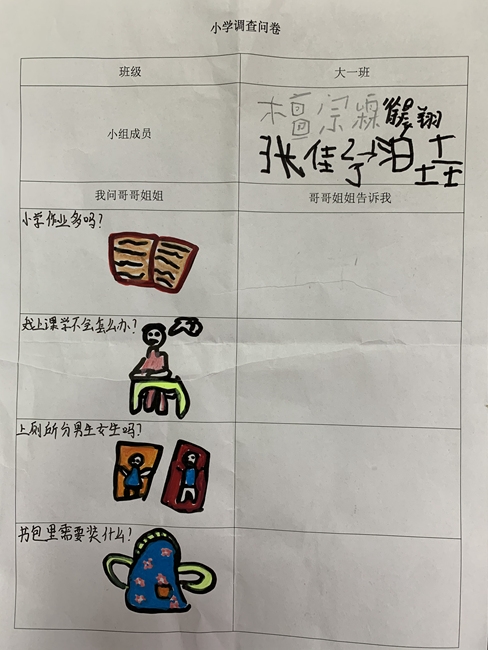 小学调查问卷
班级 大一班
小组成员 檀宗霖 熊翔
张佳
我问哥哥姐姐 哥哥姐姐告诉我
小学作业多吗?
我上课学不会怎么办?
上厕所分男生女生吗?
书包里需要装什么?